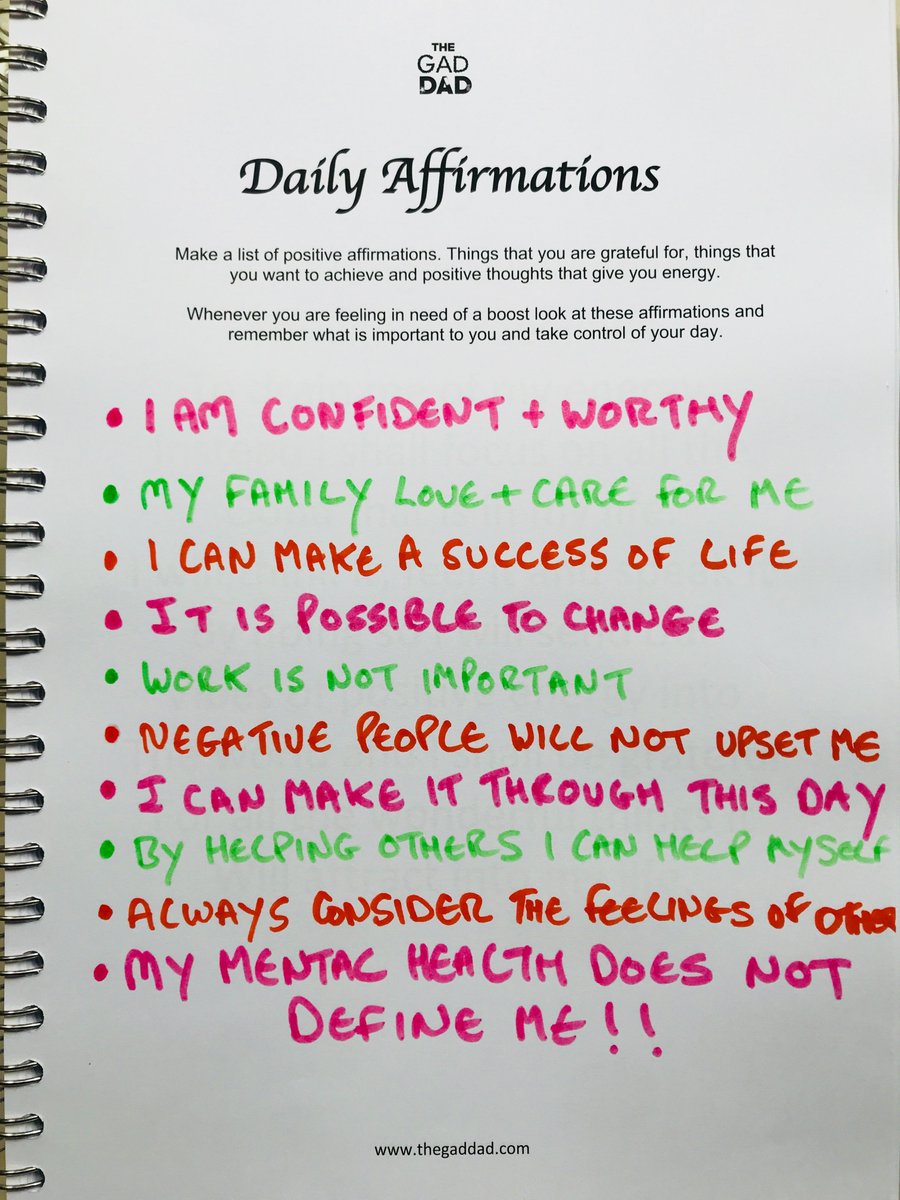 THE
GAD
DAD
Daily Affirmations
Make a list of positive affirmations. Things that you are grateful for, things that
you want to achieve and positive thoughts that give you energy.
Whenever you are feeling in need of a boost look at these affirmations and
remember what is important to you and take control of your day.
• I AM CONFIDENT + WORTHY
• MY FAMILY LOVE + CARE FOR ME
• I CAN MAKE A SUCCESS OF LIFE
• IT IS POSSIBLE TO CHANGE
• WORK IS NOT IMPORTANT
• NEGATIVE PEOPLE WILL NOT UPSET ME
• I CAN MAKE IT THROUGH THIS DAY
• BY HELPING OTHERS I CAN HELP MYSELF
• ALWAYS CONSIDER THE FEELINGS OF
• MY MENTAL HEALTH DOES NOT
DEFINE ME!!
www.thegaddad.com